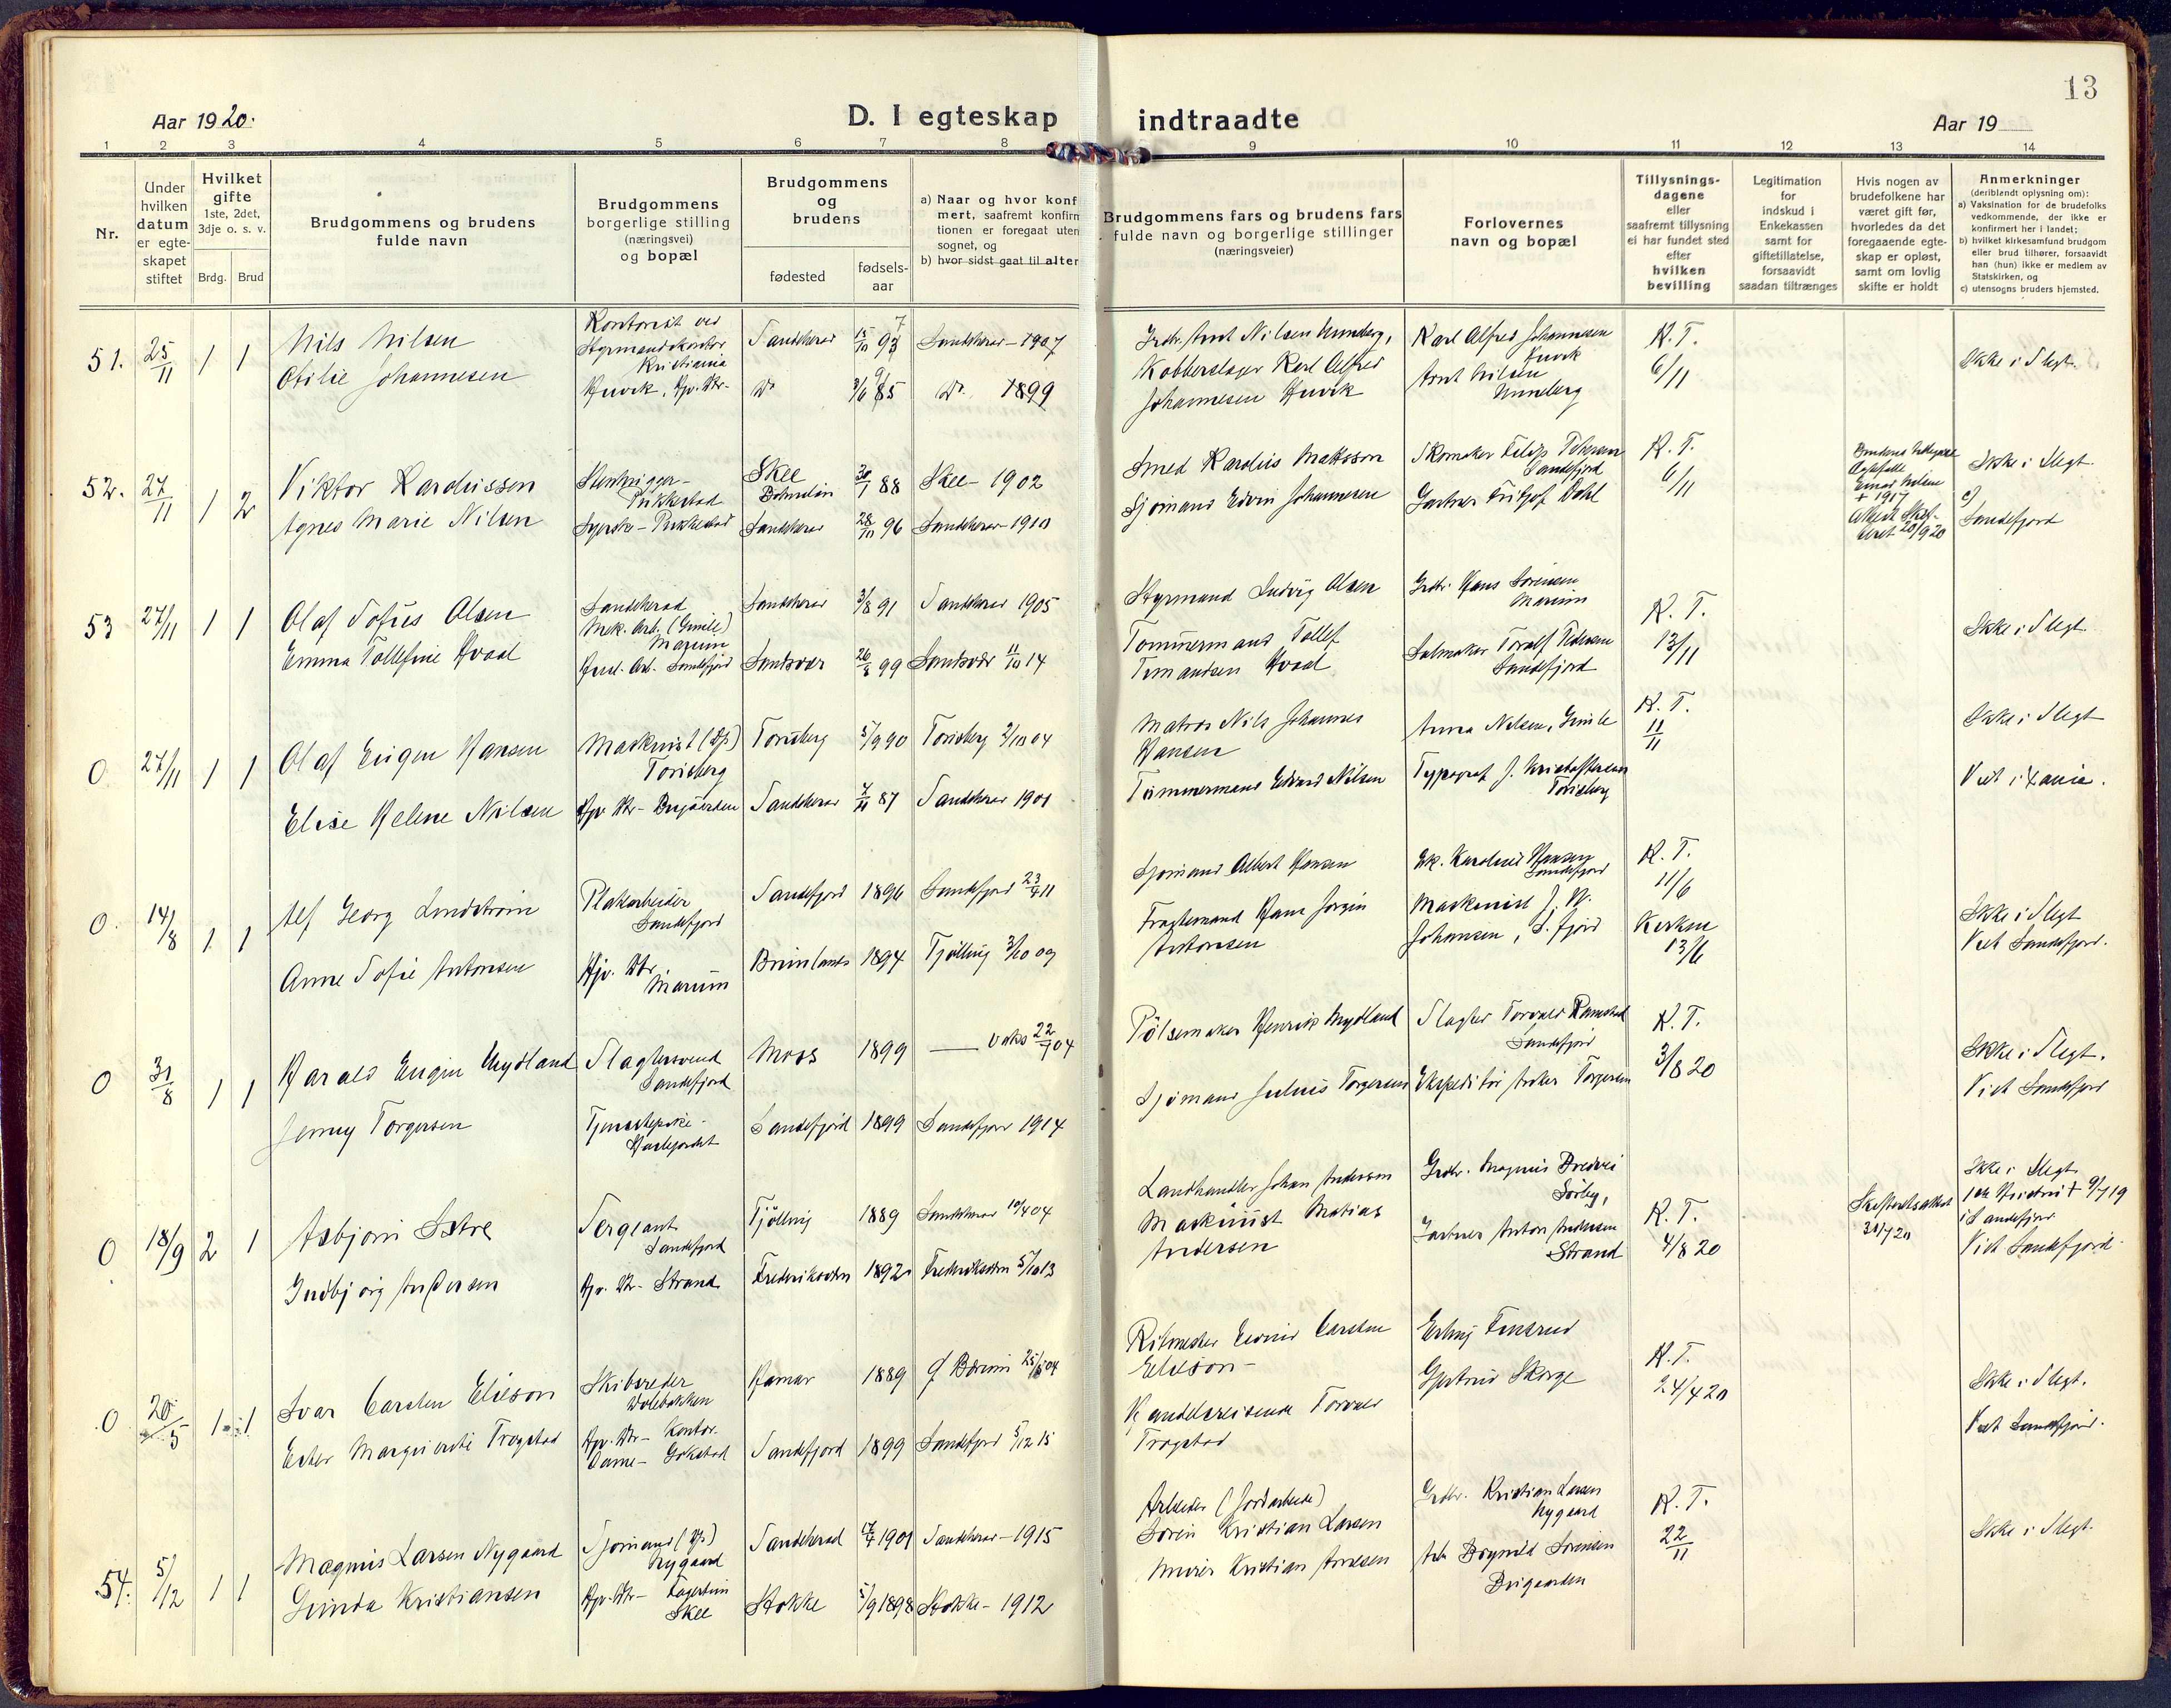 13
Aar 1920.
D. I egteskap indtraadte
Aar 19
1 2 3 4 5 6 7 8 9 10 11 12 13 14
Nr.
Under
hvilken
datum
er egte-
skapet
stiftet
Hvilket
gifte
1ste, 2det,
3dje o. s. v.
Brdg. Brud
Brudgommens og brudens
fulde navn
Brudgommens
borgerlige stilling
(næringsvei)
og bopæl
Brudgommens
og
brudens
fødested
fødsels-
aar
a) Naar og hvor konf
mert, saafremt konfirm
tionen er foregaat uten
sognet, og
b) hvor sidst gaat til alter
Brudgommens fars og brudens fars
fulde navn og borgerlige stillinger
(næringsveier)
Forlovernes
navn og bopæl
Tillysnings-
dagene
eller
saafremt tillysning
ei har fundet sted
efter
hvilken
bevilling
Legitimation
for
indskud i
Enkekassen
samt for
giftetillatelse,
forsaavidt
saadan tiltrænges
Hvis nogen av
brudefolkene har
været gift før,
hvorledes da det
foregaaende egte-
skap er opløst,
samt om lovlig
skifte er holdt
Anmerkninger
(deriblendt oplysning om):
a) Vaksination for de brudefolks
vedkommende, der ikke er
konfirmert her i landet;
b) hvilket kirkesamfund brudgom
eller brud tilhører, forsaavidt
han (hun) ikke er medlem av
Statskirken, og
c) utensogns bruders hjemsted.
51. 25/11 1 1
Nils Nilsen
Otilie Johannesen
Kontorist ved
Styrmandskontor
Kristiania
Huvik, Hjv. Dtr.
Sandeherad Sandeherad - 1907
Do Do. 1899
Grdbr. Arnt Nilsen Unneberg,
Kobberslager Karl Alfred
Johannesen Huvik
Karl Alfred Johannesen
Huvik
Arnt Nilsen
Unneberg
K. T.
6/11
Ikke i Slegt.
52. 27/11 1 2
Viktor Karolussen
Agnes Marie Nilsen
Stenhugger -
Pukkestad
Syerske - Pukkestad
Skee
Bohuslän 30/1 88 Skee - 1902
Sandeherad 28/10 96 Sandeherad - 1910
Smed Karolus Mattsson
Sjømand Edvin Johannesen
Skomaker Filip
Sandefjord
Gartner Fritjof Dahl
K. T.
6/11
Einar Nilsen
+ 1917
20/9 20
Ikke i Slegt
c)
Sandefjord
53 27/11 1 1
Olaf Sofus Olsen
Emma Tollefine Hvaal
Sandeherad
Mek. Arb. (Gimle)
Marum
Sandefjord
Sandeherad 3/8 91 Sandeherad 1905
Sandsvær 26/3 99 Sandsvær 11/10 14
Styrmand Ludvig Olsen
Tømmermand Tollef
Hvaal
Grdbr. Hans Sørensen
Marum
Salmaker Toralf Pedersen
Sandefjord
K. T.
13/11
Ikke i Slegt
0 27/11 1 1
Olaf Eugen Hansen
Elise Helene Nilsen
Maskinist (Dp.)
Tønsberg
Hjv. Dtr - Bugaarden
Tønsberg 5/9 90 Tønsberg 2/10 04
Sandeherad 87 Sandeherad 1901
Matros Nils Johannes
Hansen
Tømmermand Edvard Nilsen
Anna Nilsen, Gimle
Typograf J. Kristoffersen
Tønsberg
K. T.
11/11
Ikke i Slegt
0. 14/8 1 1
Alf Georg Lindstrøm
Anne Sofie Antonsen
Platearbeider
Sandefjord
Hjv. Dtr.
Marum
Sandefjord 1896 Sandefjord 23/4 11
Brunlanes 1894 Tjølling 3/10 09
Sjømand Albert Hansen
Fragtemand Hans Jørgen
Antonsen
Karoline Hansen
Sandefjord
Maskinist J. W.
Johansen, S. fjord
K. T.
11/6
Kirken
13/6
Ikke i Slegt
Viet Sandefjord.
0 31/8 1 1
Harald Eugen Mydland
Jenny Torgersen
Slagtersvend
Sandefjord
Tjenestepike -
Moss 1899 — Vaks 22/7 04
Sandefjord 1899 Sandefjord 1914
Pølsemaker Henrik Mydland
Sjømand Julius Torgersen
Slagter Torvald Ramstad
Sandefjord
Ekspeditør Anker Torgersen
K. T.
3/8 20
Ikke i Slegt.
Viet Sandefjord
0 18/9 2 1
Asbjørn Istre
Indbjørg Andersen
Sergeant
Sandefjord
Hjv. Dtr - Strand
Tjølling 1889 Sandeherad 10/4 04
Fredriksvern 1892 Fredriksvern 5/10 13
Landhandler Johan Andersen
Maskinist Matias
Andersen
Grdbr. Magnus Bredvei
Sørby,
Gartner Anton Andersen
Strand
K. T.
4/8 20
Skifteretsattest
31/7 20
Ikke i Slegt
i Sandefjord
Viet Sandefjord.
0 20/5 1 1
Ivar Carsten Elieson
Ester Marguerite Trogstad
Skibsreder
Hjv. Dtr - Kontor-
Dame - Gokstad
Hamar 1889 V. Bærum 25/9 04
Sandefjord 1899 Sandefjord 5/12 15
Ritmester Carsten
Elieson -
Handelsreisende Torvald
Trogstad
Erling Finsrud
Gjertrud Skorge
K. T.
24/4 20
Ikke i Slegt.
Viet Sandefjord.
54. 5/12 1 1
Magnus Larsen Nygaard
Gunda Kristiansen
Sjømand (Dp.)
Nygaard
Hjv. Dtr - Fagertun
Skee
Sandeherad 1901 Sandeherad - 1915
Stokke 5/9 1898 Stokke - 1912
Arbeider (Jordarbeide)
Søren Kristian Larsen
Murer Kristian Arnesen
Grdbr. Kristian Larsen
Nygaard
Arb. Brynild Sørensen
Bugaarden
K. T.
22/11
Ikke i Slegt.